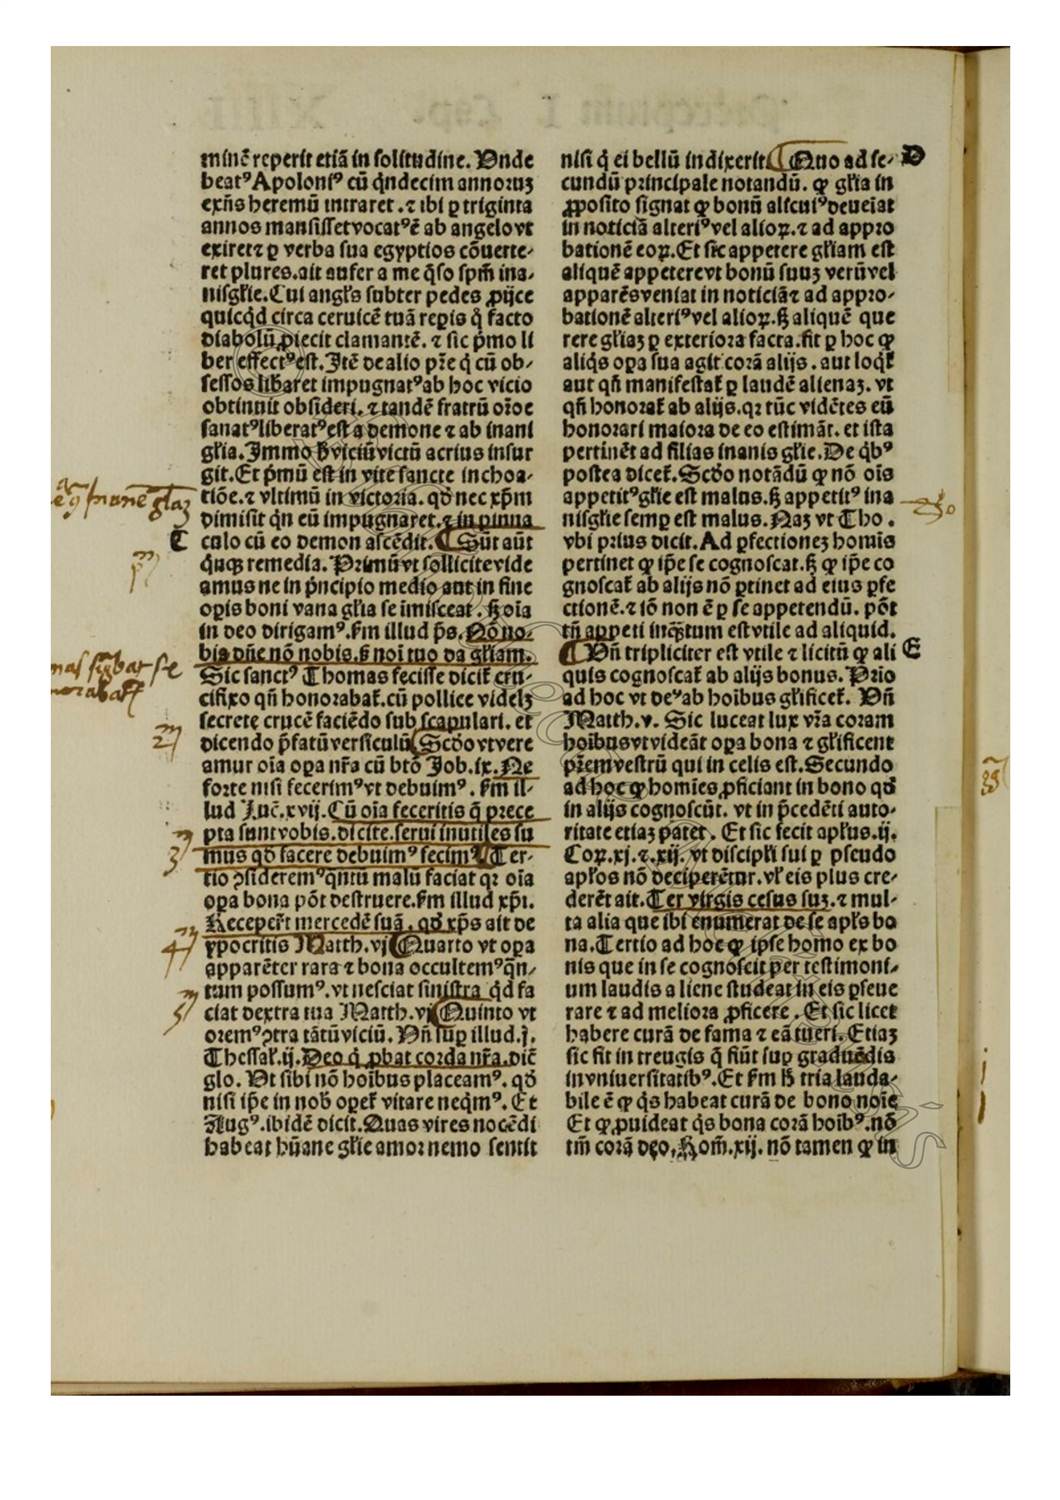 minē reperit etiā in solitudine. Vnde
beatꝰ Apoloniꝰ cū q̄ndecim annoruꝫ
exn̄s heremū intraret. ⁊ ibi ꝑ triginta
annos mansisset vocatꝰ ē ab angelo vt
exiret ⁊ ꝑ verba sua egyptios cōuerte-
ret plures. ait aufer a me q̄so spm̄ ina-
nis gl'ie. Cui angl's subter pedes ꝓijce
quicq̄d circa ceruicē tuā repis q̄ facto
diabolū ꝓiecit clamantē. ⁊ sic p̄mo li
ber effectꝰ est. Itē de alio pr̄e q̄ cū ob-
sessos lib̄aret impugnatꝰ ab hoc vicio
obtinuit obsideri. ⁊ tandē fratrū or̄oe
sanatꝰ liberatꝰ est a demone ⁊ ab inani
gl'ia. Immo h̄ viciū victū acrius insur
git. Et p̄mū est in vite sancte inchoa-
tiōe. ⁊ vltimū in victoria. qd̄ nec xp̄m
dimisit q̄n eū impugnaret. ⁊ in pinna
C culo cū eo demon ascēdit. ¶ Sūt aūt
q̄uqꝫ remedia. Primū vt sollicite vide
amus ne in p̄ncipio medio aut in fine
oꝑis boni vana gl'ia se īmisceat. sꝫ oīa
in deo dirigamꝰ. s̄m illud p̄s. Nō no-
bis dn̄e nō nobis. sꝫ noī tuo da gl'iam.
Sic sanctꝰ Thomas fecisse dicit̄ cru-
cifixo qn̄ honorabat̄. cū pollice videlꝫ
secrete crucē faciēdo sub scapulari. et
dicendo p̄fatū versiculū ¶ Scd̄o vt vere
amur oīa oꝑa nr̄a cū btō Job. ix. Ne
forte nisi fecerimꝰ vt debuimꝰ. s̄m il-
lud Luc̄. xvij. Cū oīa feceritis q̄ prece
pta sunt vobis. dicite. serui inutiles su
mus qd̄ facere debuimꝰ fecimꝰ ¶ Ter-
tio ꝯsideremꝰ q̄ntū malū faciat qꝛ oīa
oꝑa bona pōt destruere. s̄m illud xp̄i.
Receper̄t mercedē suā. qd̄ xp̄s ait de
ypocritis Matth. vj ¶ Quarto vt oꝑa
apparēter rara ⁊ bona occultemꝰ q̄n-
tum possumꝰ. vt nesciat sinistra q̄d fa
ciat dextra tua Matth. vj ¶ Quinto vt
oremꝰ ꝯtra tātū viciū. Vn̄ suꝑ illud. j.
Thessal̄. ij. Deo q̄ ꝓbat corda nr̄a. dic̄
glo. Vt sibi nō hoībus placeamꝰ. qd̄
nisi ip̄e in nob̄ oꝑet̄ vitare neq̄mꝰ. Et
Augꝰ. ibidē dicit. Quas vires nocēdi
habeat hūane gl'ie amor nemo sentit
nisi q̄ ei bellū indixerit ¶ Quo ad se- D
cundū principale notandū. ꝙ gl'ia in
ꝓposito signat ꝙ bonū alicuiꝰ deueīat
in noticiā alteriꝰ vel alioꝝ. ⁊ ad appro
bationē eoꝝ. Et sic appetere gl'iam est
aliquē appetere vt bonū suuꝫ verū vel
apparēs veniat in noticiā ⁊ ad appro-
bationē alteriꝰ vel alioꝝ. sꝫ aliquē que
rere gl'iaꝫ ꝑ exteriora facta. fit ꝑ hoc ꝙ
aliq̄s oꝑa sua agit corā alijs. aut loq̄t̄
aut qn̄ manifestat̄ ꝑ laudē alienaꝫ. vt
qn̄ honorat̄ ab alijs. qꝛ tūc vidētes eū
honorari maiora de eo estimāt. et ista
pertinēt ad filias inanis gl'ie. De q̄bꝰ
postea dicet̄. Scd̄o notādū ꝙ nō oīs
appetitꝰ gl'ie est malus. sꝫ appetitꝰ ina
nis gl'ie semꝑ est malus. Naꝫ vt Tho.
vbi prius dicit. Ad ꝑfectioneꝫ homīs
pertinet ꝙ ip̄e se cognoscat. sꝫ ꝙ ip̄e co
gnoscat̄ ab alijs nō ꝑtinet ad eius ꝑfe
ctionē. ⁊ iō non ē ꝑ se appetendū. pōt
tn̄ appeti inq̄ꝫtum est vtile ad aliquid.
¶ Vn̄ tripliciter est vtile ⁊ licitū ꝙ ali E
quis cognoscat̄ ab alijs bonus. Prīo
ad hoc vt deꝰ ab hoībus gl'ificet̄. Vn̄
Matth. v. Sic luceat lux vr̄a coram
hoībus vt videāt oꝑa bona ⁊ gl'ificent
pr̄em vestrū qui in celis est. Secundo
ad hoc ꝙ homīes ꝓficiant in bono qd̄
in alijs cognoscūt. vt in p̄cedēti auto-
ritate etiaꝫ patet. Et sic fecit apl'us. ij.
Coꝝ. xj. ⁊. xij. vt discipl'i sui ꝑ pseudo
apl'os nō deciperētur. vl' eis plus cre-
derēt ait. Ter virgis cesus suꝫ. ⁊ mul-
ta alia que ibi enumerat de se apl's bo
na. Tertio ad hoc ꝙ ipse homo ex bo
nis que in se cognoscit per testimoni-
um laudis aliene studeat in eis ꝑseue
rare ⁊ ad meliora ꝓficere. Et sic licet
habere curā de fama ⁊ eā tueri. Etiaꝫ
sic fit in treugis q̄ fiūt suꝑ graduēdis
in vniuersitatibꝰ. Et s̄m h̄ tria lauda-
bile ē ꝙ q̄s habeat curā de bono noīe
Et ꝙ ꝓuideat q̄s bona corā hoībꝰ. nō
tm̄ corā deo, Rom̄. xij. nō tamen ꝙ in